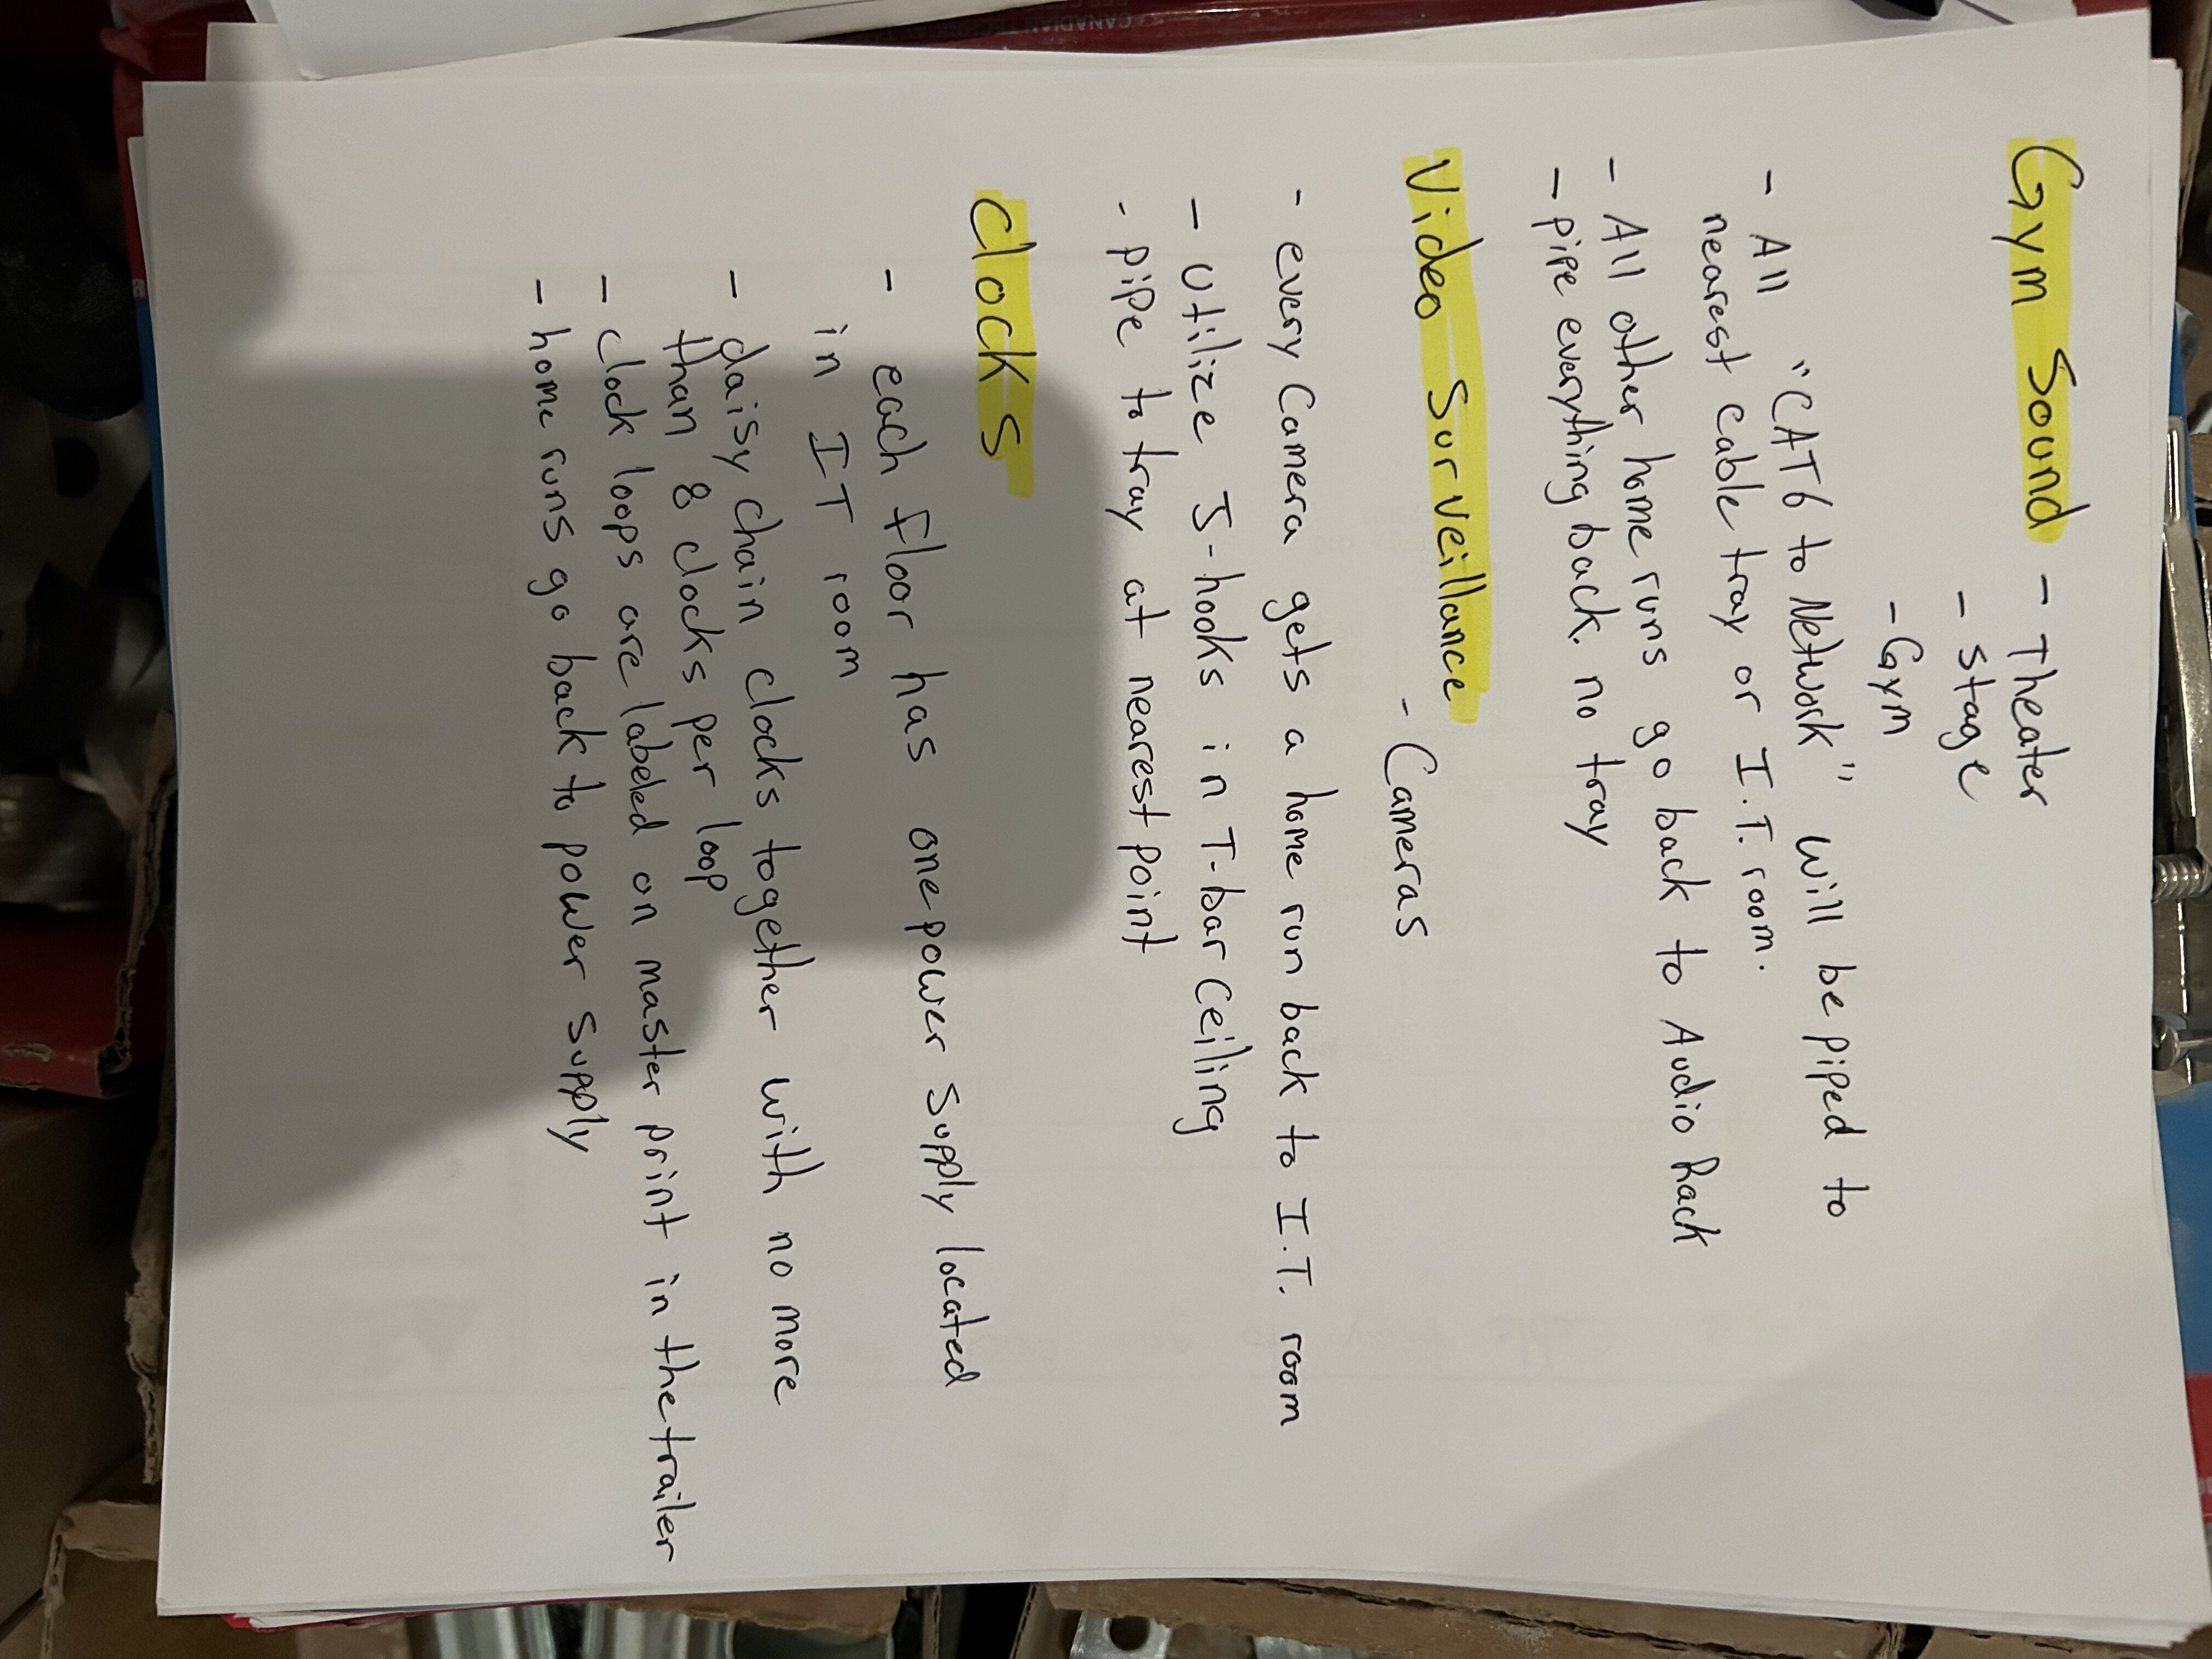 Gym Sound - Theater
- stage
- Gym
- All "CAT6 to Network" will be piped to
nearest cable tray or I.T. room.
- All other home runs go back to Audio Rack
- pipe everything back. no tray
Video Surveillance - Cameras
- every Camera gets a home run back to I.T. room
- Utilize J-hooks in T-bar Ceiling
- pipe to tray at nearest point
Clocks
- each floor has one power supply located
in IT room
- daisy chain clocks together with no more
than 8 clocks per loop
- clock loops are labeled on master print in the trailer
- home runs go back to power supply